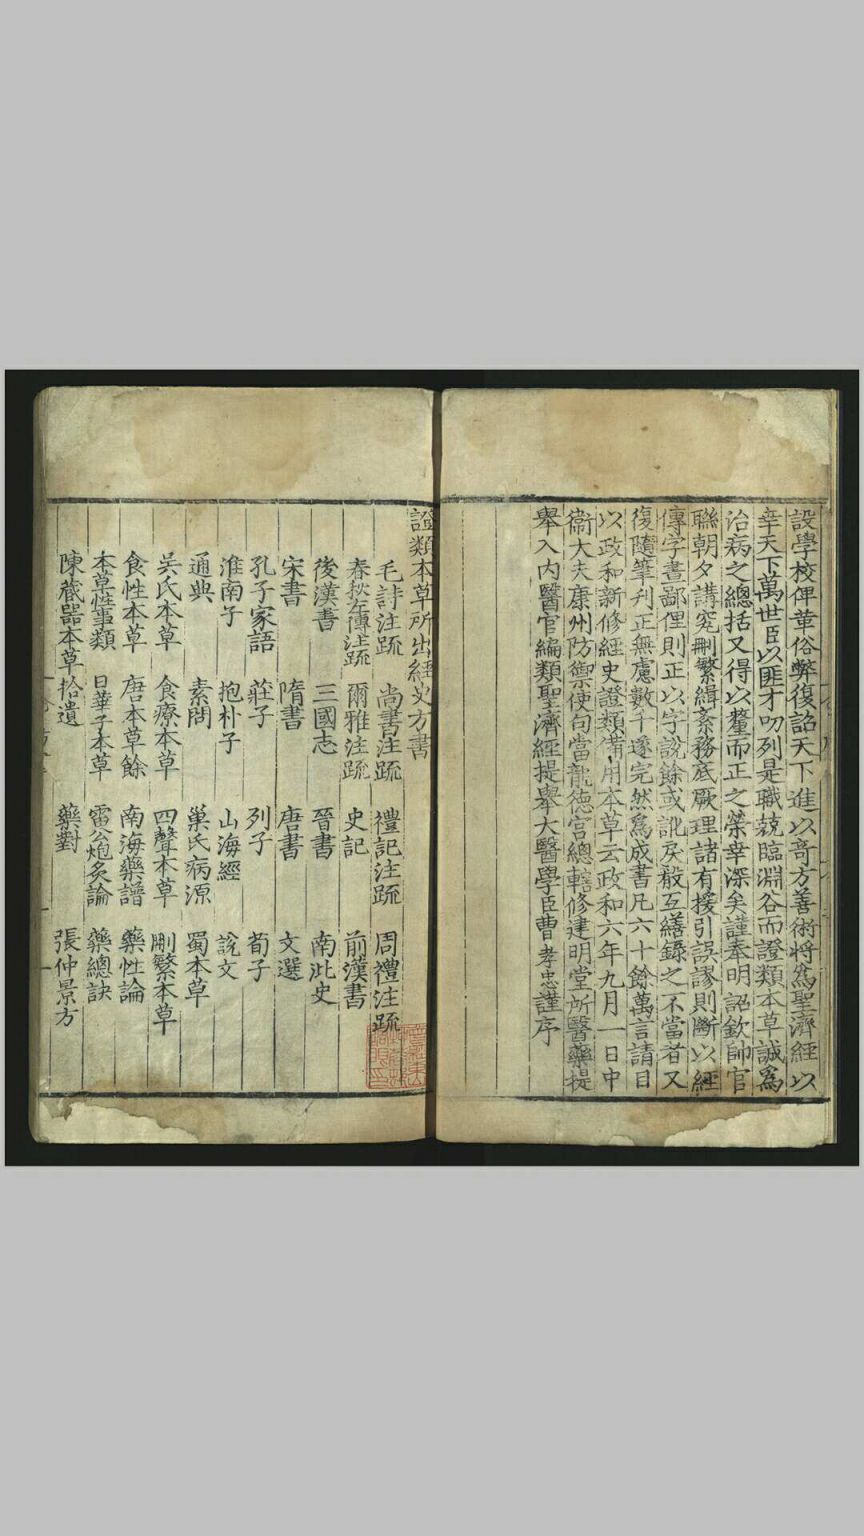 設學校俾革俗弊復詔天下進以竒方善術將爲聖濟經以
幸天下萬世臣以匪才叨列是職兢臨淵谷而證類本草誠爲
治病之總括又得以釐而正之榮幸深矣謹奉明詔欽帥官
聯朝夕講究刪繁緝紊務底厥理諸有援引誤謬則斷以經
傳字畫鄙俚則正以字說餘或訛戾殽互繕錄之不當者又
復隨筆刋正無慮數千遂完然爲成書凡六十餘萬言請目
以政和新修經史證類備用本草云政和六年九月一日中
衞大夫康州防禦使句當龍德宮總轄修建明堂所醫藥提
舉入內醫官編類聖濟經提舉大醫學臣曹孝忠謹序
證類本草所出經史方書
毛詩注疏 尚書注疏 禮記注疏 周禮注疏
春秋左傳注疏 爾雅注疏 史記 前漢書
後漢書 三國志 晉書 南北史
宋書 隋書 唐書 文選
孔子家語 莊子 列子 荀子
淮南子 抱朴子 山海經 說文
通典 素問 巢氏病源 蜀本草
吳氏本草 食療本草 四聲本草 刪繁本草
食性本草 唐本草餘 南海藥譜 藥性論
本草性事類 日華子本草 雷公炮炙論 藥總訣
陳藏器本草拾遺 藥對 張仲景方